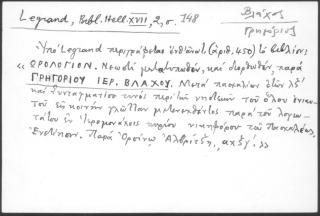 Legrand, Bibl. Hell. XVII, 2, σ. 148
Βλάχος
Γρηγόριος
Ὑπὸ Legrand περιγράφεται (ἀριθ. 450) τὸ βιβλίον:
« ΩΡΟΛΟΓΙΟΝ. Νεωστὶ μετατυπωθέν, καὶ διορθωθέν, παρὰ
ΓΡΗΓΟΡΙΟΥ ΙΕΡ. ΒΛΑΧΟΥ. Μετὰ πασχαλίου ἐτῶν λξ΄
καὶ συνταγματίου τινὸς περὶ τῶν νηστειῶν τοῦ ὅλου ἐνιαυ-
τοῦ εἰς κοινὴν γλῶτταν μετενεχθέντος παρὰ τοῦ λογιω-
τάτου ἐν ἱερομονάχοις κυρίου νικηφόρου τοῦ Πασχαλέως.
Ἐνετίησιν. Παρὰ Ὀρσίνῳ Ἀλβρίτζῃ, αχξγ΄. »